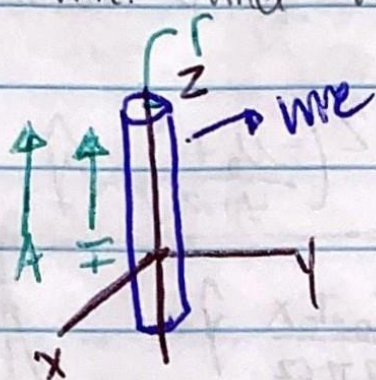 r
Z
wire
A I
y
x